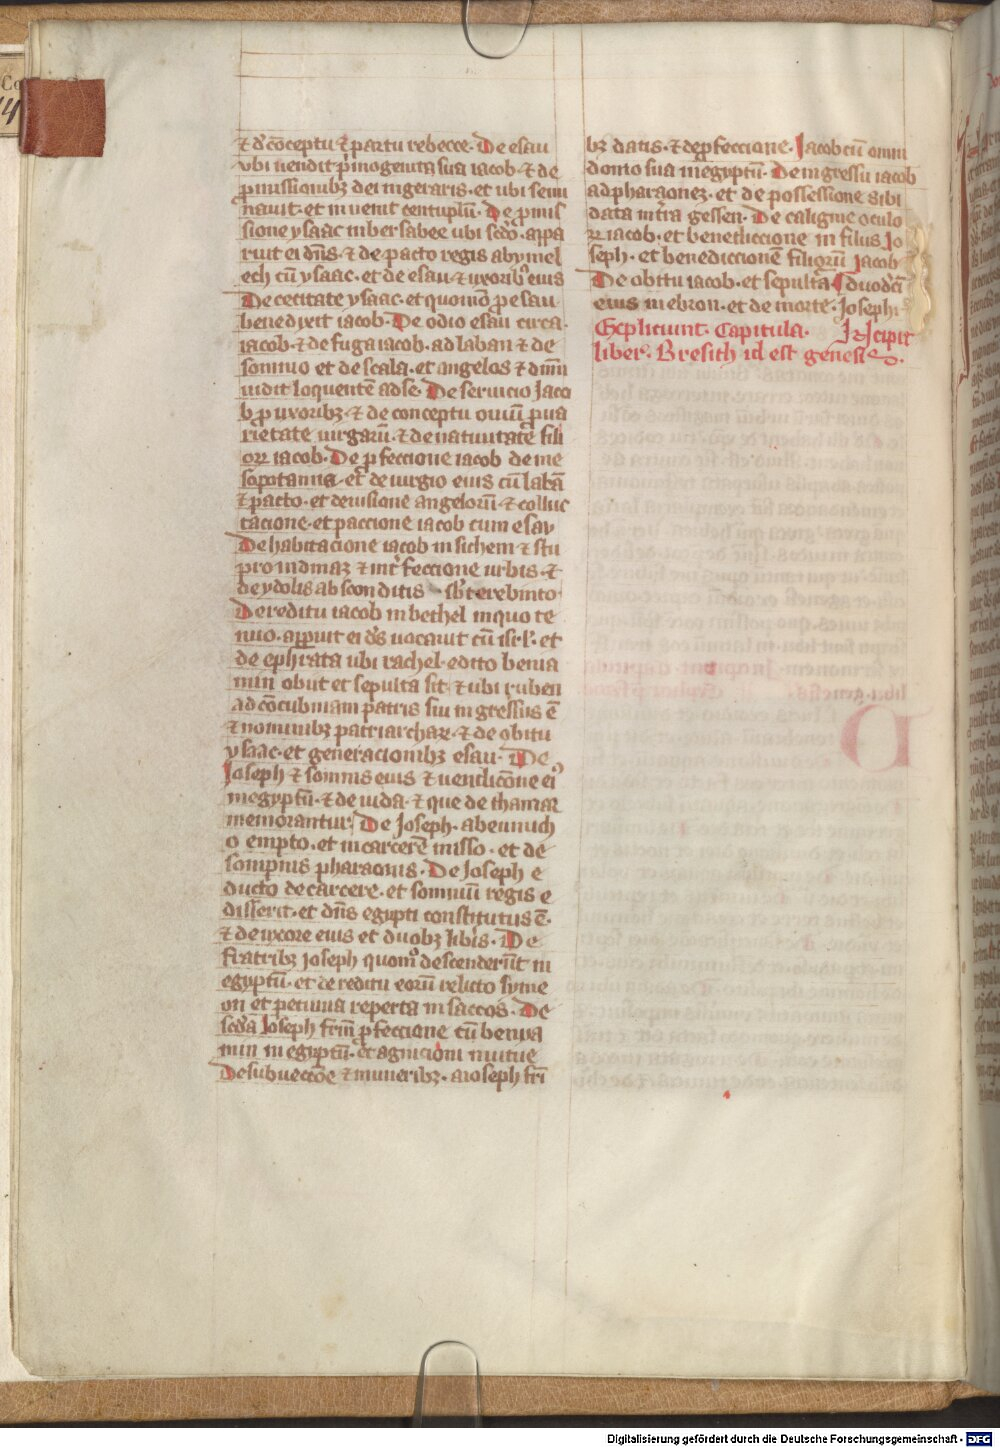 ⁊ de co̅ceptu ⁊ partu rebecce. De esau
vbi uendit p̱imogenita sua iacob. ⁊ de
ꝓmissionibꝫ dei in geraris. et ubi semi
nauit. et inuenit centuplu̅. De ꝓmis
sione ysaac in bersabee ubi sc̅do. appa
ruit ei dn̅s. ⁊ de pacto regis abymel
ech cu̅ ysaac. et de esau. ⁊ uxoribꝰ eius
De cecitate ysaac. et quomo̅ ꝓ esau
benedixit iacob. De odio esau circa.
iacob. ⁊ de fuga iacob. ad laban ⁊ de
somnio et de scala. et angelos ⁊ dnm̅
uidit loquente̅ ad se. De seruicio Jaco
b ꝓ uxoribꝫ. ⁊ de conceptu ouiu̅ ꝓ ua
rietate uirgaru̅. ⁊ de natiuitate fili
oꝝ iacob. De ꝓfeccione iacob de me
sopotamia. et de iurgio eius cu̅ laba̅
⁊ pacto. et de uisione angeloru̅ ⁊ colluc
tacione. et paccione iacob cum esau
De habitacione iacob in sichem ⁊ stu
pro in dinaꝫ ⁊ int̓feccione urbis. ⁊
de ydolis absconditis sb̓ terebinto.
De reditu iacob in bethel in quo te
nuo. apparuit ei ds̅ uocauit cu̅ isrl̅. et
de ephrata ubi rachel. edito benia
min obiit et sepulta sit. ⁊ ubi ruben
ad co̅cubinam patris sui ingressus e̅
⁊ nominibꝫ patriarchaꝝ. ⁊ de obitu
ysaac. et generacionibꝫ esau. De
Joseph ⁊ somnis eius ⁊ uendico̅ne eiꝰ
in egyptu̅. ⁊ de iuda. ⁊ que de thamar
memorantur. De Joseph. ab eunuch
o empto. et in carcere̅ misso. et de
sompnis pharaonis. De Joseph e
ducto de carcere. et somnium regis e
disserit. et dn̅s egypti constitutus e̅.
⁊ de uxore eius et duobꝫ liberis. De
fratribꝫ Joseph quomo̅ descenderu̅t in
egyptu̅. et de reditu eoru̅ relicto syme
on et pecunia reperta in saccos. De
sc̅da Joseph frm̅ ꝓfeccione cu̅ benia
min in egyptu̅. et agnicioni mutue
De subuectio̅e ⁊ muneribꝫ. a ioseph fri̅
bꝫ datis. ⁊ de ꝓfeccione. Jacob cu̅ omni
domo sua in egyptu̅. De ingressu iacob
ad pharaoneꝫ. et de possessione sibi
data in terra gessen. De caligine oculo
ꝝ iacob. et benediccione in filius Jo
seph. et benediccione̅ filioru̅ iacob
De obitu iacob. et sepultura duodeci̅
eius in ebron. et de morte. Josephi.
Expliciunt. Capitula. Incipit
liber. Bresich id est genesis.
Digitalisierung gefördert durch die Deutsche Forschungsgemeinschaft - DFG